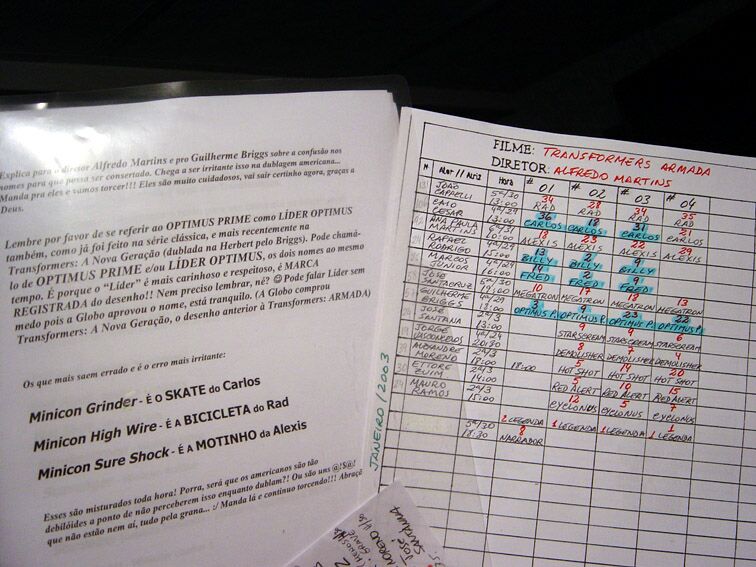 Explica para o diretor Alfredo Martins e pro Guilherme Briggs sobre a confusão nos
nomes para que possa ser consertado. Chega a ser irritante isso na dublagem americana...
Manda pra eles e vamos torcer!!! Eles são muito cuidadosos, vai sair certinho agora, graças a
Deus.
Lembre por favor de se referir ao OPTIMUS PRIME como LÍDER OPTIMUS
também, como já foi feito na série clássica, e mais recentemente na
Transformers: A Nova Geração (dublada na Herbert pelo Briggs). Pode chamá-
lo de OPTIMUS PRIME e/ou LÍDER OPTIMUS, os dois nomes ao mesmo
tempo. É porque o "Líder" é mais carinhoso e respeitoso, é MARCA
REGISTRADA do desenho!! Nem preciso lembrar, né? ☺ Pode falar Líder sem
medo pois a Globo aprovou o nome, está tranquilo. (A Globo comprou
Transformers: A Nova Geração, o desenho anterior à Transformers: ARMADA)
Os que mais saem errado e é o erro mais irritante:
Minicon Grinder - É O SKATE do Carlos
Minicon High Wire - É A BICICLETA do Rad
Minicon Sure Shock - É A MOTINHO da Alexis
Esses são misturados toda hora! Porra, será que os americanos são tão
debilóides a ponto de não perceberem isso enquanto dublam?! Ou são uns @!S@!
que não estão nem aí, tudo pela grana... :/ Manda lá e continuo torcendo!!! Abração
JANEIRO/2003
FILME: TRANSFORMERS ARMADA
DIRETOR: ALFREDO MARTINS
Nº Ator // Atriz Hora # 01 # 02 # 03 # 04
34 28 34 35
JOÃO CAPPELLI 13:00 RAD RAD RAD RAD
36 19 37 21
CAIO CESAR 13:00 CARLOS CARLOS CARLOS CARLOS
18 23 22 29
ANA PAULA MARTINS 10:00 ALEXIS ALEXIS ALEXIS ALEXIS
13 2 9
RAFAEL RODRIGO 15:00 BILLY BILLY BILLY
14 2 9
MARCOS JÚNIOR 16:00 FRED FRED FRED
10 17 18 13
JOSÉ SANTACRUZ 11:00 MEGATRON MEGATRON MEGATRON MEGATRON
3 9 23 22
GUILHERME BRIGGS 11:00 OPTIMUS P. OPTIMUS P. OPTIMUS P. OPTIMUS P.
9 9 6
JOSÉ SANTANA 13:00 STARSCREAM STARSCREAM STARSCREAM
8 7 4
JORGE VASCONCELLOS 20:30 DEMOLISHER DEMOLISHER DEMOLISHER
5 14 20
ALEXANDRE MORENO 18:00 18:00 HOT SHOT HOT SHOT HOT SHOT
5 10 15
ETTORE ZUIM 14:00 RED ALERT RED ALERT RED ALERT
12 5 7
MAURO RAMOS 15:00 CYCLONUS CYCLONUS CYCLONUS
2 LEGENDA 1 LEGENDA 1 LEGENDA 1 LEGENDA
18:30 8 NARRADOR
MORENO
JOSÉ
SANTANA